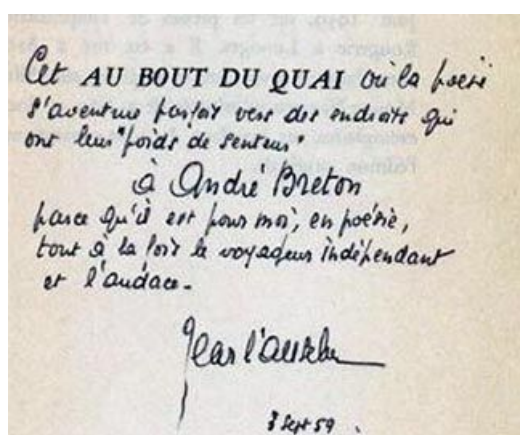 Cet AU BOUT DU QUAI où la poésie
s'aventure parfois vers des endroits qui
ont leur "poids de senteur"
à André Breton
parce qu'il est pour moi, en poésie,
tout à la fois le voyageur indépendant
et l'audace.
Jean l'Anselme
Sept 59.